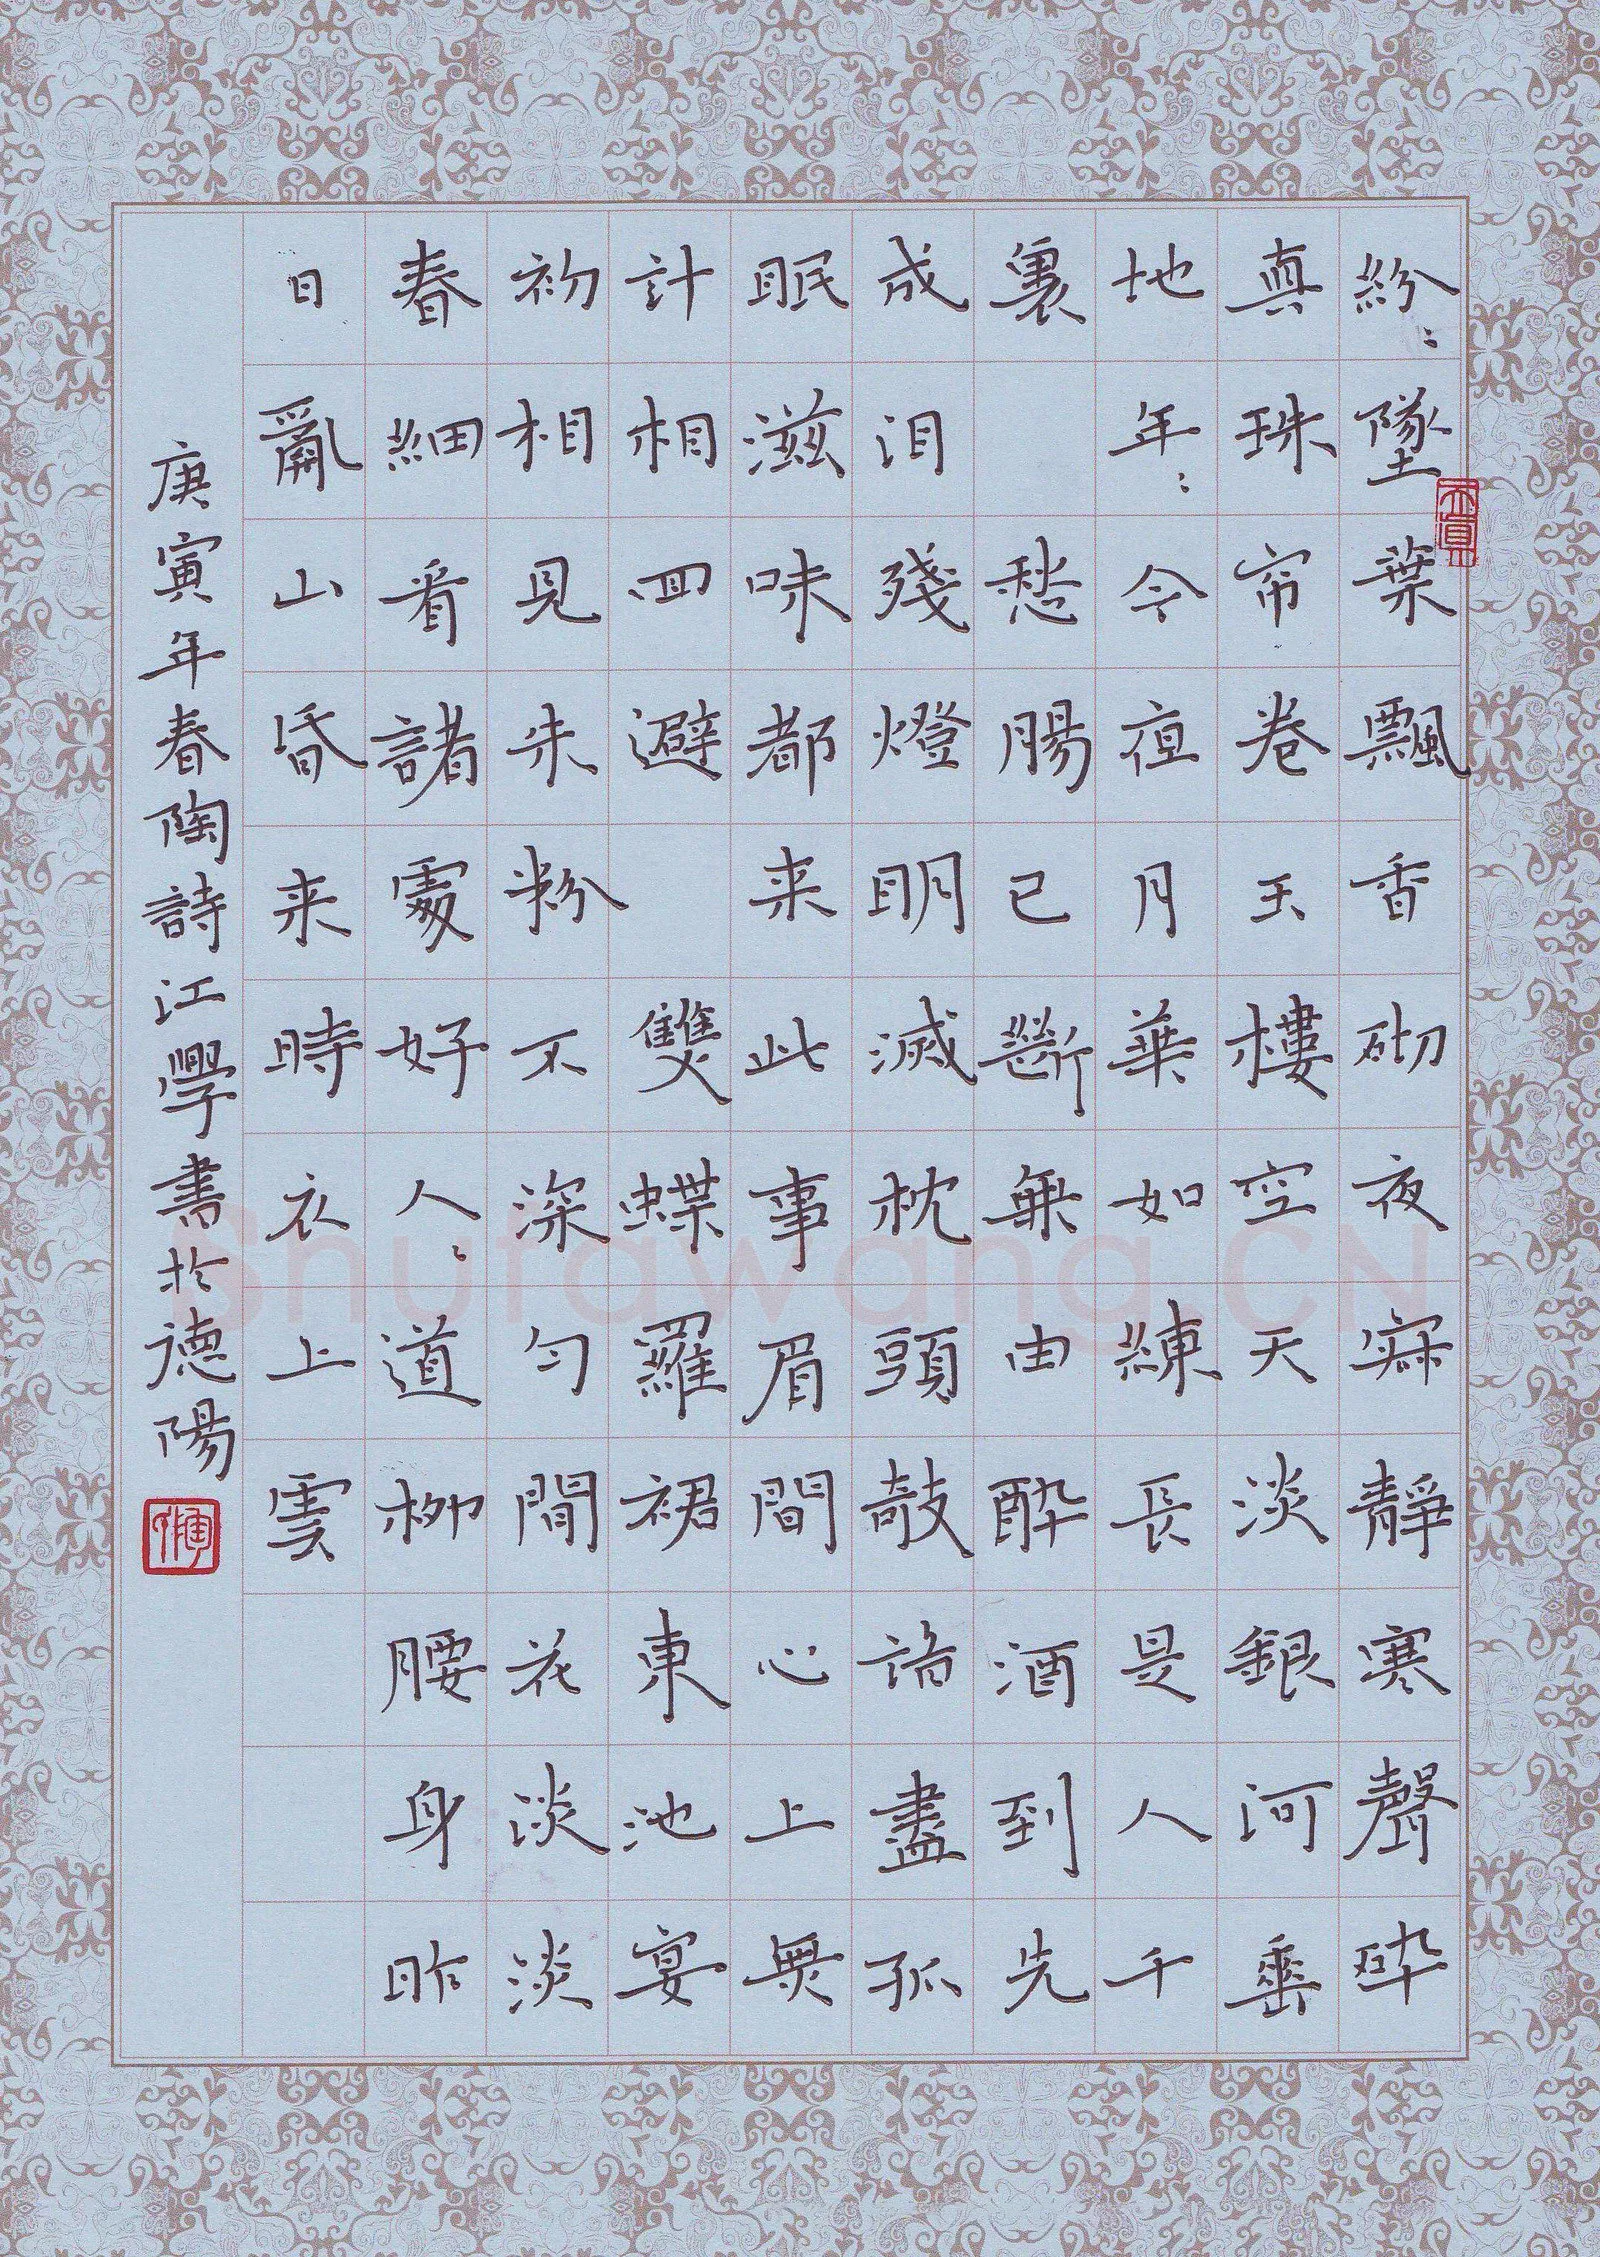 紛〻墜葉飄香砌夜寂靜寒聲碎
真珠帘卷玉樓空天淡銀河垂
地年〻今夜月華如練長是人千
裏 愁腸已斷無由醉酒到先
成泪殘燈明滅枕頭敧諳盡孤
眠滋味都来此事眉間心上無
計相回避 雙蝶羅裙東池宴
初相見朱粉不深勻閒花淡淡
春細看諸處好人〻道柳腰身昨
日亂山昏来時衣上雲
庚寅年春陶詩江學書於德陽
Shufawang.CN